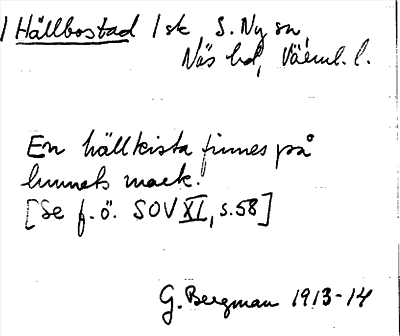 / Hällbostad / sk S. Ny sn,
Näs hd, Värml. l.
En hällkista finnes på
hmnets mark.
[Se f. ö. SOV XI, s. 58]
G. Bergman 1913-14